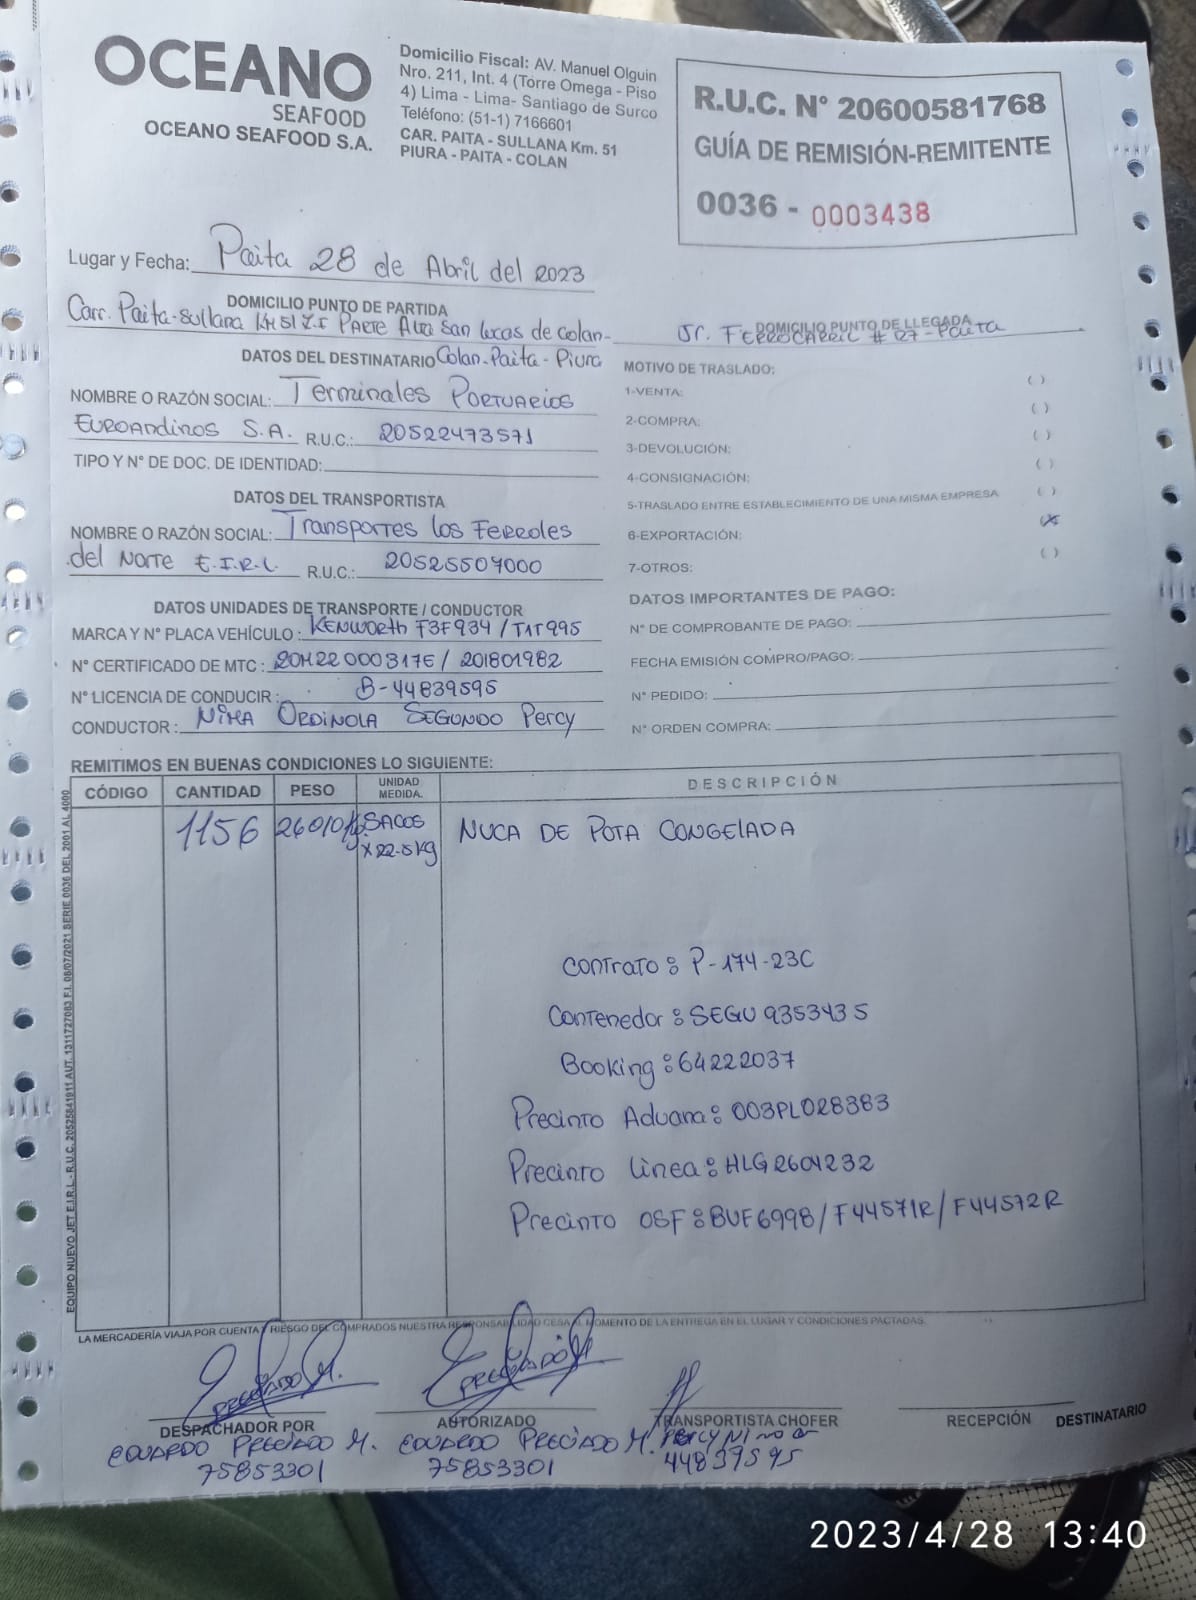 OCEANO
SEAFOOD
OCEANO SEAFOOD S.A.
Domicilio Fiscal: AV. Manuel Olguin
Nro. 211, Int. 4 (Torre Omega - Piso
4) Lima - Lima- Santiago de Surco
Teléfono: (51-1) 7166601
CAR. PAITA - SULLANA Km. 51
PIURA - PAITA - COLAN
R.U.C. N° 20600581768
GUÍA DE REMISIÓN-REMITENTE
0036 - 0003438
Lugar y Fecha: Paita 28 de Abril del 2023
DOMICILIO PUNTO DE PARTIDA
Carr. Paita-Sullana KM 51 Z.I Parte Alta San Lucas de Colan-
Colan-Paita-Piura
DOMICILIO PUNTO DE LLEGADA
Jr. FERROCARRIL # 127-Paita
DATOS DEL DESTINATARIO
NOMBRE O RAZÓN SOCIAL: Terminales Portuarios
Euroandinos S.A. R.U.C.: 20522473571
TIPO Y N° DE DOC. DE IDENTIDAD:
DATOS DEL TRANSPORTISTA
NOMBRE O RAZÓN SOCIAL: Transportes los Ferroles
del Norte E.I.R.L. R.U.C.: 20525507000
DATOS UNIDADES DE TRANSPORTE / CONDUCTOR
MARCA Y N° PLACA VEHÍCULO: KENWORTH F3F934 / T1T995
N° CERTIFICADO DE MTC: 20M22000317E / 201801982
N° LICENCIA DE CONDUCIR: B-44839595
CONDUCTOR: NIMA ORDINOLA SEGUNDO Percy
MOTIVO DE TRASLADO:
1-VENTA: ( )
2-COMPRA: ( )
3-DEVOLUCIÓN: ( )
4-CONSIGNACIÓN: ( )
5-TRASLADO ENTRE ESTABLECIMIENTO DE UNA MISMA EMPRESA ( )
6-EXPORTACIÓN: (X)
7-OTROS: ( )
DATOS IMPORTANTES DE PAGO:
N° DE COMPROBANTE DE PAGO:
FECHA EMISIÓN COMPRO/PAGO:
N° PEDIDO:
N° ORDEN COMPRA:
REMITIMOS EN BUENAS CONDICIONES LO SIGUIENTE:
CÓDIGO CANTIDAD PESO UNIDAD MEDIDA. DESCRIPCIÓN
1156 26010 kg SACOS X 22.5 kg NUCA DE POTA CONGELADA
Contrato: P-174-23C
Contenedor: SEGU 9353435
Booking: 64222037
Precinto Aduana: 003PL028383
Precinto Linea: HLG2604232
Precinto OSF: BUF6998/F44571R/F44572R
EQUIPO NUEVO JET E.I.R.L - R.U.C. 20525841911 AUT. 1311727083 F.I. 08/07/2021 SERIE 0036 DEL 2001 AL 4000
LA MERCADERÍA VIAJA POR CUENTA Y RIESGO DEL COMPRADOS NUESTRA RESPONSABILIDAD CESA AL MOMENTO DE LA ENTREGA EN EL LUGAR Y CONDICIONES PACTADAS.
PRECIADO M. PRECIADO M.
DESPACHADOR POR AUTORIZADO TRANSPORTISTA CHOFER RECEPCIÓN DESTINATARIO
EDUARDO PRECIADO M. EDUARDO PRECIADO M. PERCY Nima
75853301 75853301 44839595
2023/4/28 13:40